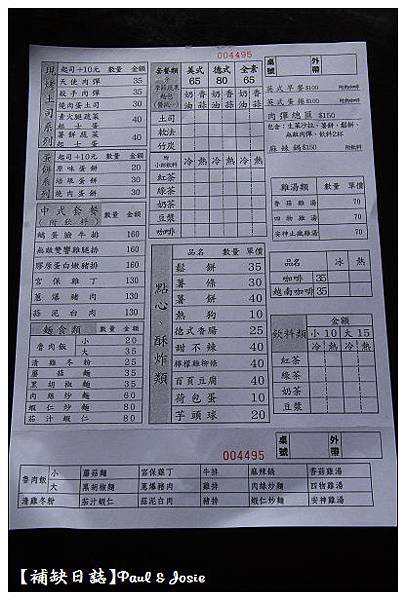 004495
桌號 外帶
現烤土司系列
起司+10元 數量 金額
天使肉彈 35
殺手肉彈 35
燒肉蛋土司 30
素火腿蔬菜起士蛋 40
薯餅蔬菜起士蛋 40
蛋餅系列
起司+10元 數量 金額
原味蛋餅 20
培根蛋餅 30
燒肉蛋餅 30
中式套餐(附飲料) 數量 金額
鐵蛋臉牛排 160
無敵雙響雞腿排 160
膠原蛋白嫩豬排 160
宮保雞丁 130
蔥爆豬肉 130
蒜泥白肉 130
麵食類 數量 金額
魯肉飯 小 20
大 35
清雞冬粉 25
蘑菇麵 35
黑胡椒麵 35
肉絲炒麵 60
蝦仁炒麵 60
茄汁蝦仁 80
套餐類 美式 65 德式 80 全素 65
奶油 香蒜 奶油 香蒜 奶油 香蒜
土司
軟法
竹炭
冷 熱 冷 熱 冷 熱
紅茶
綠茶
奶茶
豆漿
咖啡
點心、酥炸類
品名 數量 單價
鬆餅 35
薯條 30
薯餅 40
熱狗 10
德式香腸 25
甜不辣 40
檸檬雞柳條 40
百頁豆腐 40
荷包蛋 10
芋頭球 20
桌號 外帶
英式早餐$100
英式蛋捲$100
肉彈總匯$150
麻辣鍋$150
雞湯類 數量 單價
香菇雞湯 70
四物雞湯 70
安神止飢雞湯 70
品名 冰 熱
咖啡 35
越南咖啡 35
飲料類 金額
小10 大15
冷 熱 冷 熱
紅茶
綠茶
奶茶
豆漿
004495
桌號 外帶
魯肉飯 小 蘑菇麵 宮保雞丁 牛排 麻辣鍋 香菇雞湯
大 黑胡椒麵 蔥爆豬肉 雞排 肉絲炒麵 四物雞湯
清雞冬粉 茄汁蝦仁 蒜泥白肉 豬排 蝦仁炒麵 安神雞湯
【補缺日誌】Paul & Josie